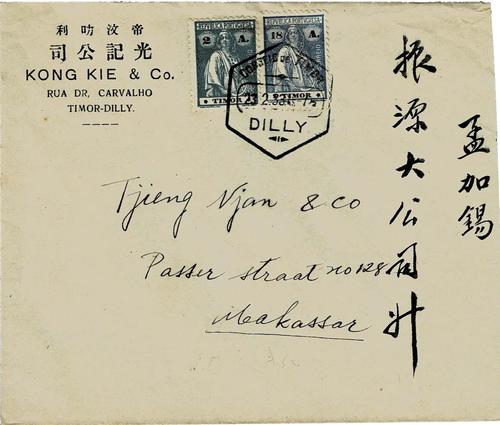 帝汶叻利
光記公司
KONG KIE & Co.
RUA DR, CARVALHO
TIMOR-DILLY.
REPUBLICA PORTUGUESA
2 A.
TIMOR
REPUBLICA PORTUGUESA
18 A.
TIMOR
DILLY
孟加錫
振源大公司升
Tjieng Njan & Co
Passer straat no 128
Makassar